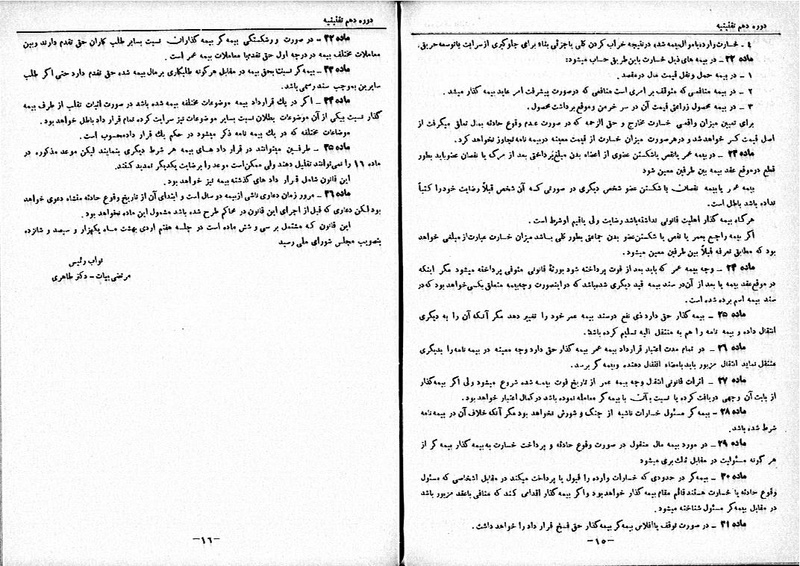 دوره دهم تقنینیه
٤ ـ خسارت وارده باموال بیمه شده در نتیجه خراب کردن کلی یا جزئی بناء برای جلوگیری از سرایت یا توسعه حریق.
ماده ۲۲ ـ در بیمه های ذیل خسارت باین طریق حساب میشود:
۱ ـ در بیمه حمل و نقل قیمت مال در مقصد.
۲ ـ در بیمه منافعی که متوقف بر امری است منافعی که در صورت پیشرفت امر عاید بیمه گذار میشد.
۳ ـ در بیمه محصول زراعتی قیمت آن در سر خرمن و موقع برداشت محصول.
برای تعیین میزان واقعی خسارت مخارج و حق الزحمه که در صورت عدم وقوع حادثه بمال تعلق میگرفت از
اصل قیمت کسر خواهد شد و در هر صورت میزان خسارت از قیمت معینه در بیمه نامه تجاوز نخواهد کرد.
ماده ۲۳ ـ در بیمه عمر یا نقص یا شکستن عضوی از اعضاء بدن مبلغ پرداختی بعد از مرگ یا نقصان عضو باید بطور
قطع در موقع عقد بیمه بین طرفین معین شود
بیمه عمر یا بیمه نقصان یا شکستن عضو شخص دیگری در صورتی که آن شخص قبلاً رضایت خود را کتباً
نداده باشد باطل است.
هر گاه بیمه گذار اهلیت قانونی نداشته باشد رضایت ولی یا قیم او شرط است.
اگر بیمه راجع بعمر یا نقص یا شکستن عضو بدن جماعتی بطور کلی باشد میزان خسارت عبارت از مبلغی خواهد
بود که مطابق تعرفه قبلاً بین طرفین معین میشود.
ماده ۲٤ ـ وجه بیمه عمر که باید بعد از فوت پرداخته شود بورثهٔ قانونی متوفی پرداخته میشود مگر اینکه
در موقع عقد بیمه یا بعد از آن در سند بیمه قید دیگری شده باشد که در اینصورت وجه بیمه متعلق بکسی خواهد بود که در
سند بیمه اسم برده شده است.
ماده ۲۵ ـ بیمه گذار حق دارد ذی نفع در سند بیمه عمر خود را تغییر دهد مگر آنکه آن را به دیگری
انتقال داده و بیمه نامه را هم به منتقل الیه تسلیم کرده باشد.
ماده ۲٦ ـ در تمام مدت اعتبار قرارداد بیمه عمر بیمه گذار حق دارد وجه معینه در بیمه نامه را بدیگری
منتقل نماید انتقال مزبور باید بامضاء انتقال دهنده و بیمه گر برسد.
ماده ۲۷ ـ اثرات قانونی انتقال وجه بیمه عمر از تاریخ فوت بیمه شده شروع میشود ولی اگر بیمه گذار
از بابت آن وجهی دریافت کرده یا نسبت به آن با بیمه گر معامله نموده باشد در کمال اعتبار خواهد بود.
ماده ۲۸ ـ بیمه گر مسئول خسارات ناشیه از جنگ و شورش نخواهد بود مگر آنکه خلاف آن در بیمه نامه
شرط شده باشد.
ماده ۲۹ ـ در مورد بیمه مال منقول در صورت وقوع حادثه و پرداخت خسارت به بیمه گذار بیمه گر از
هر گونه مسئولیت در مقابل ثالث بری میشود
ماده ۳۰ ـ بیمه گر در حدودی که خسارات وارده را قبول یا پرداخت میکند در مقابل اشخاصی که مسئول
وقوع حادثه یا خسارت هستند قائم مقام بیمه گذار خواهد بود و اگر بیمه گذار اقدامی کند که منافی با عقد مزبور باشد
در مقابل بیمه گر مسئول شناخته میشود.
ماده ۳۱ ـ در صورت توقف یا افلاس بیمه گر بیمه گذار حق فسخ قرار داد را خواهد داشت.
ـ۱۵ـ
دوره دهم تقنینیه
ماده ۳۲ ـ در صورت ورشکستگی بیمه گر بیمه گذاران نسبت بسایر طلب کاران حق تقدم دارند و بین
معاملات مختلف بیمه در درجه اول حق تقدم با معاملات بیمه عمر است.
ماده ۳۳ ـ بیمه گر نسبت بحق بیمه در مقابل هر گونه طلبکاری بر مال بیمه شده حق تقدم دارد حتی اگر طلب
سایرین بموجب سند رسمی باشد.
ماده ۳٤ ـ اگر در یک قرارداد بیمه موضوعات مختلفه بیمه شده باشد در صورت اثبات تقلب از طرف بیمه
گذار نسبت بیکی از آن موضوعات بطلان نسبت بسایر موضوعات نیز سرایت کرده تمام قرار داد باطل خواهد بود.
موضوعات مختلفه که در یک بیمه نامه ذکر میشود در حکم یک قرار داد محسوب است.
ماده ۳۵ ـ طرفین میتوانند در قرار داد های بیمه هر شرط دیگری بنمایند لیکن موعد مذکوره در
ماده ۱٦ را نمی توانند تقلیل دهند ولی ممکن است موعد را برضایت یکدیگر تمدید کنند.
این قانون شامل قرار داد های گذشته بیمه نیز خواهد بود.
ماده ۳٦ ـ مرور زمان دعاوی ناشی از بیمه دو سال است و ابتدای آن از تاریخ وقوع حادثه منشاء دعوی خواهد
بود لکن دعاوی که قبل از اجرای این قانون در محاکم طرح شده باشد مشمول این ماده نخواهد بود.
این قانون که مشتمل بر سی و شش ماده است در جلسه هفتم اردی بهشت ماه یکهزار و سیصد و شانزده
بتصویب مجلس شورای ملی رسید
نواب رئیس
مرتضی بیات ـ دکتر طاهری
ـ۱٦ـ